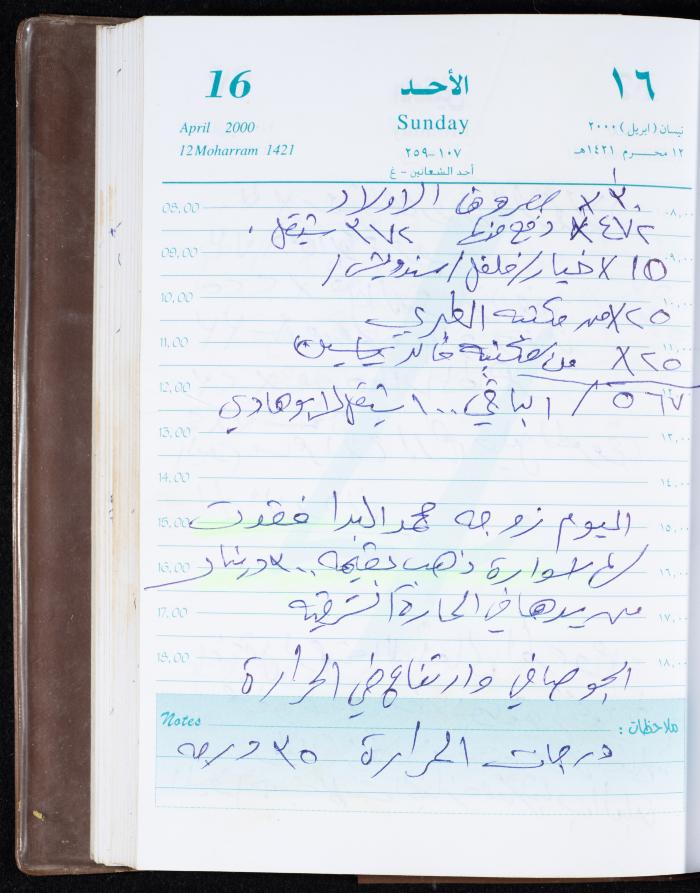 16 الأحد ١٦
April 2000 Sunday نيسان (ابريل) ٢٠٠٠
12 Moharram 1421 ١٠٧-٢٥٩ ١٢ محرم ١٤٢١هـ
أحد الشعانين - غ
08.00 ٣٠ X مصروف الاولاد ٠٨,٠٠
٤٧٢ X دفع ٣٧٢ شيقل
09.00 ١٥ X خيار/فلفل/سندويش/ ٠٩,٠٠
10.00 ٢٥ X من مكتبه الطبري ١٠,٠٠
11.00 ٢٥ X من مكتبة خالد ياسين ١١,٠٠
12.00 ٥٦٧ / الباقي ١٠٠ شيقل لابو هادي
13.00 ١٣,٠٠
14.00 ١٤,٠٠
15.00 اليوم زوجه محمد البدا فقدت ١٥,٠٠
16.00 اسوارة ذهب بقيمه ٣٠٠ دينار ١٦,٠٠
17.00 من يدها في الحارة الشرقيه ١٧,٠٠
18.00 الجو صافي وارتفاع في الحرارة ١٨,٠٠
Notes ملاحظات :
درجات الحرارة ٣٥ درجه